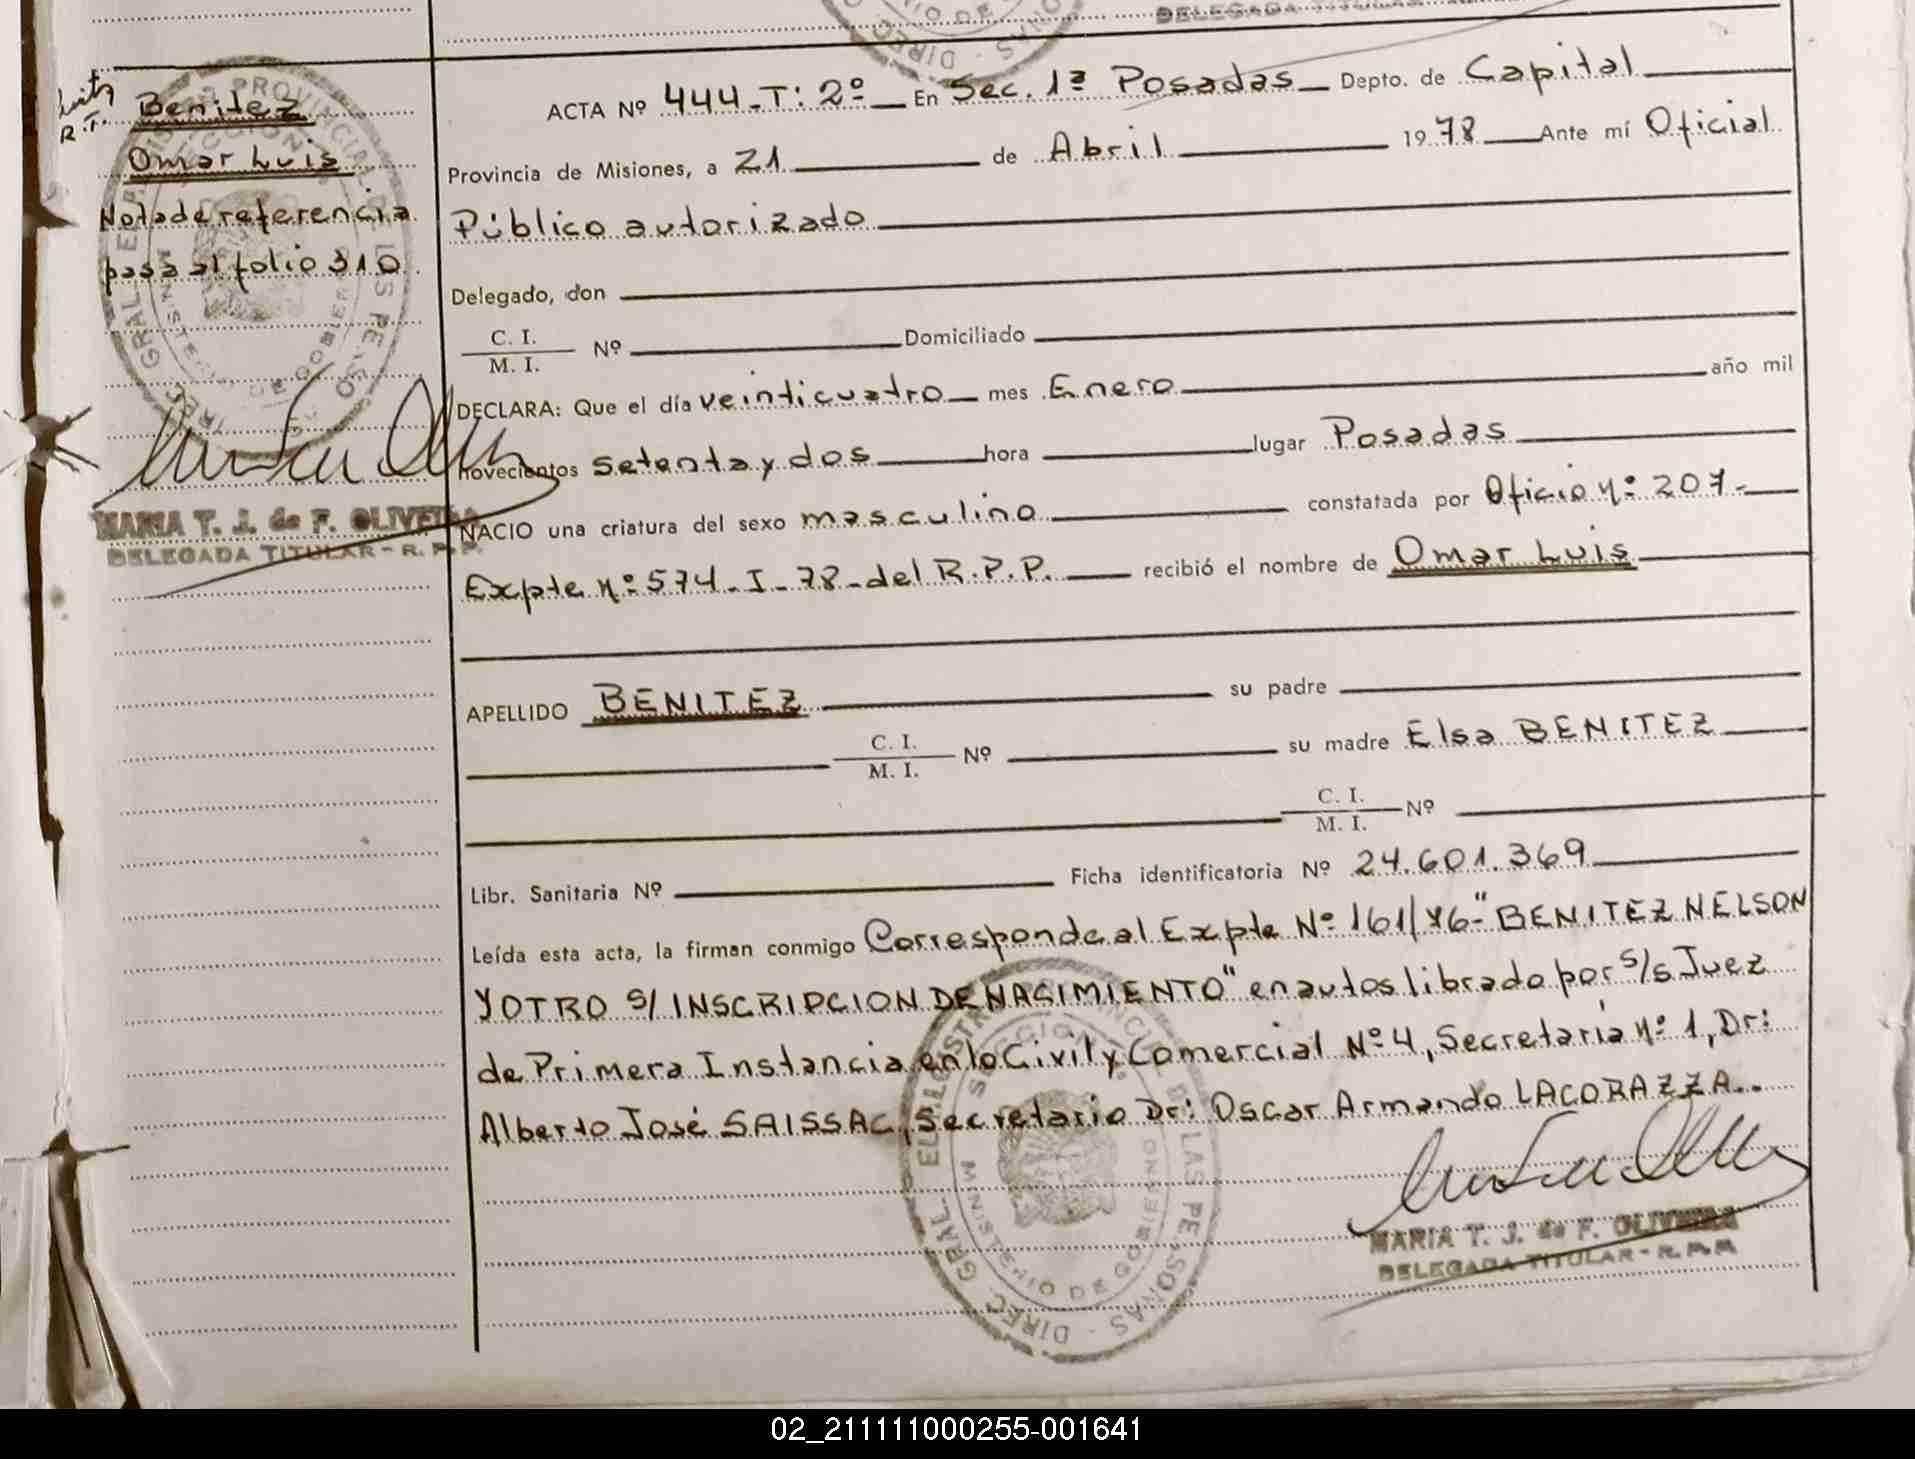 DELEGADA TITULAR
Benitez
Omar Luis
Nota de referencia
pasa al folio 310
MARIA T. J. de F. OLIVEIRA
DELEGADA TITULAR - R. P. P.
ACTA Nº 444-T: 2º En Sec. 1ª Posadas Depto. de Capital
Provincia de Misiones, a 21 de Abril 1978 Ante mí Oficial
Público autorizado
Delegado, don
C. I.
M. I. Nº Domiciliado
DECLARA: Que el día veinticuatro mes Enero año mil
novecientos setenta y dos hora lugar Posadas
NACIO una criatura del sexo masculino constatada por Oficio Nº 207-
Expte Nº 574-I-78-del R.P.P. recibió el nombre de Omar Luis
APELLIDO BENITEZ su padre
C. I.
M. I. Nº su madre Elsa BENITEZ
C. I.
M. I. Nº
Libr. Sanitaria Nº Ficha identificatoria Nº 24.601.369
Leída esta acta, la firman conmigo Corresponde al Expte Nº 161/76-"BENITEZ NELSON
Y OTRO S/ INSCRIPCION DE NACIMIENTO" en autos librado por S/S Juez
de Primera Instancia en lo Civil y Comercial Nº 4, Secretaría Nº 1, Dr:
Alberto José SAISSAC, Secretario Dr: Oscar Armando LACORAZZA..
DIREC. GRAL. DEL REGISTRO PROVINCIAL DE LAS PERSONAS
MINISTERIO DE GOBIERNO
MARIA T. J. de F. OLIVEIRA
DELEGADA TITULAR - R. P. P.
02_211111000255-001641